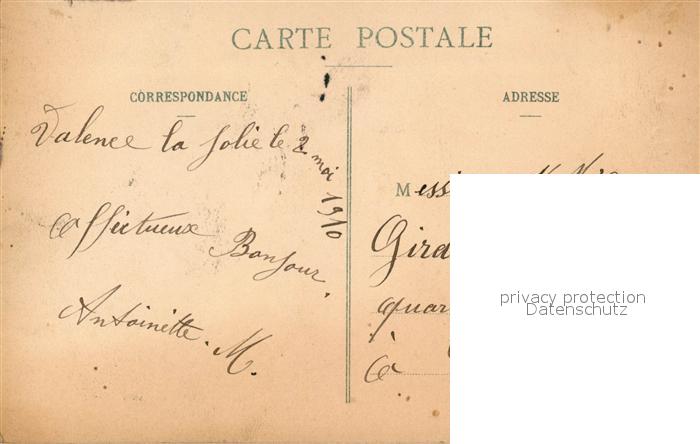 CARTE POSTALE
CORRESPONDANCE
ADRESSE
Valence la Jolie le 2 mai 1910
Affectueux Bonjour.
Antoinette. M.
M
Gira
quar
à
privacy protection
Datenschutz